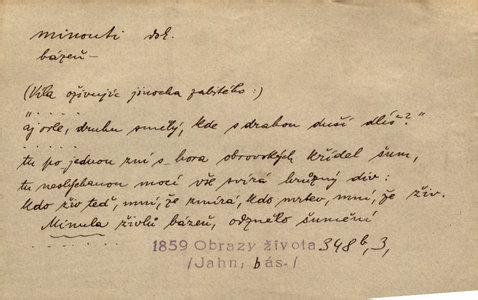 minouti dok.
bázeň –
(Víla oživujíc jinocha zabitého:)
"......
aj orle, druhu smělý, kde s drahou duší dlíš?"
.....
tu po jednou zní s hora obrovských křídel šum,
tu neslýchanou mocí vše svírá hrůzný div:
Kdo živ teď, mní, že zmírá, kdo mrtev, mní, že živ.
Minula živlů bázeň, odznělo šumění
1859 Obrazy života 348b, 3,
/Jahn, bás./